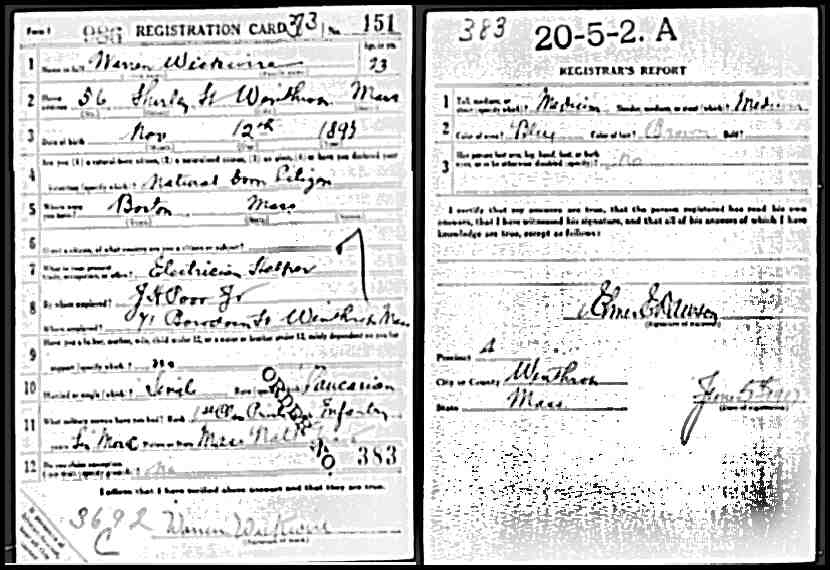 Form 1 REGISTRATION CARD 373 No. 151
Age, in yrs.
1 Name in full Warren Wickwire 23
2 Home address 56 Shirley St Winthrop Mass
3 Date of birth Nov 12th 1893
4 Are you (1) a natural born citizen, (2) a naturalized citizen, (3) an alien, (4) or have you declared your
intention (specify which)? Natural born Citizen
5 Where were you born? Boston Mass
6 If not a citizen, of what country are you a citizen or subject?
7 What is your present trade, occupation, or office? Electrician Helper
8 By whom employed? J H Poor Jr
Where employed? 71 Bowdoin St Winthrop Mass
9 Have you a father, mother, wife, child under 12, or a sister or brother under 12, solely dependent on you for
support (specify which)? no
10 Married or single (which)? Single Race (specify which)? Caucasian
11 What military service have you had? Rank 1st Class Private Infantry
years Six Mos Nation or State Mass Nat
12 Do you claim exemption (specify grounds)? No
ORDER NO. 383
I affirm that I have verified above answers and that they are true.
3692 Warren Wickwire
C
383 20-5-2. A
REGISTRAR'S REPORT
1 Tall, medium, or short (specify which)? Medium Slender, medium, or stout (which)? Medium
2 Color of eyes? Blue Color of hair? Brown Bald?
3 Has person lost arm, leg, hand, foot, or both
eyes, or is he otherwise disabled (specify)? No
I certify that my answers are true, that the person registered has read his own
answers, that I have witnessed his signature, and that all of his answers of which I have
knowledge are true, except as follows:
Elmer E. Dawson
(Signature of registrar)
Precinct A
City or County Winthrop
State Mass June 5th 1917
(Date of registration)